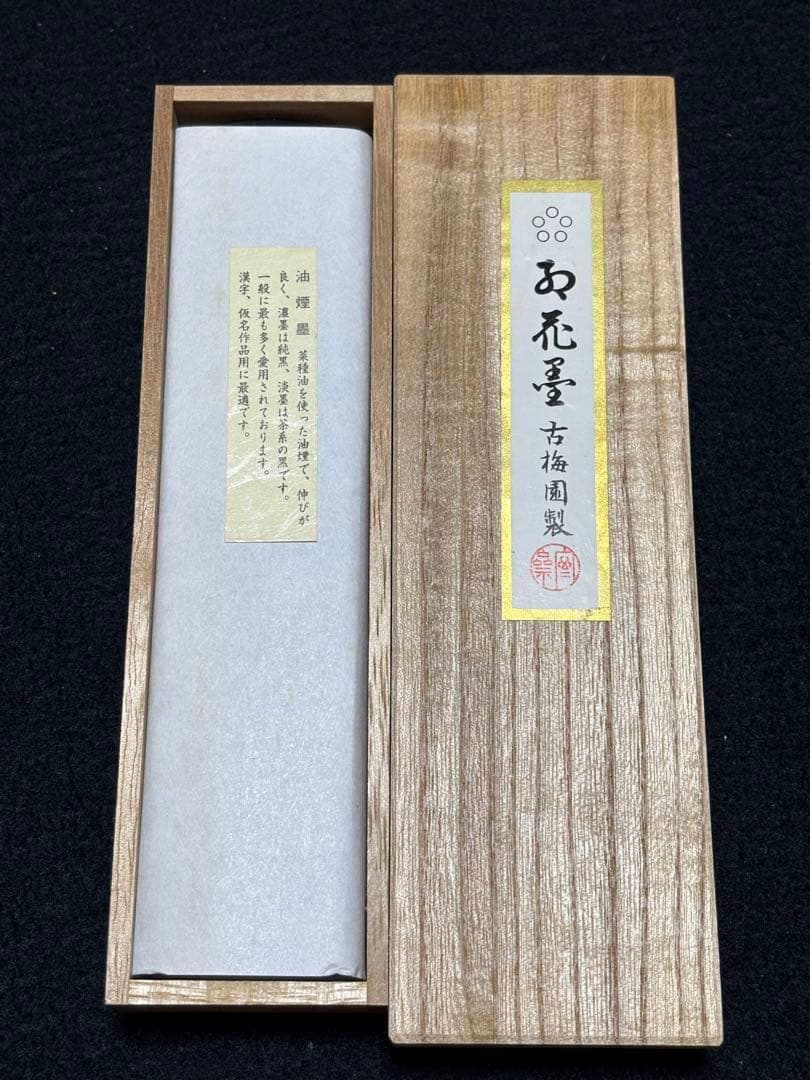 紅花墨 古梅園製
油煙墨 菜種油を使った油煙で、伸びが
良く、濃墨は純黒、淡墨は茶系の黒です。
一般に最も多く愛用されております。
漢字、仮名作品用に最適です。